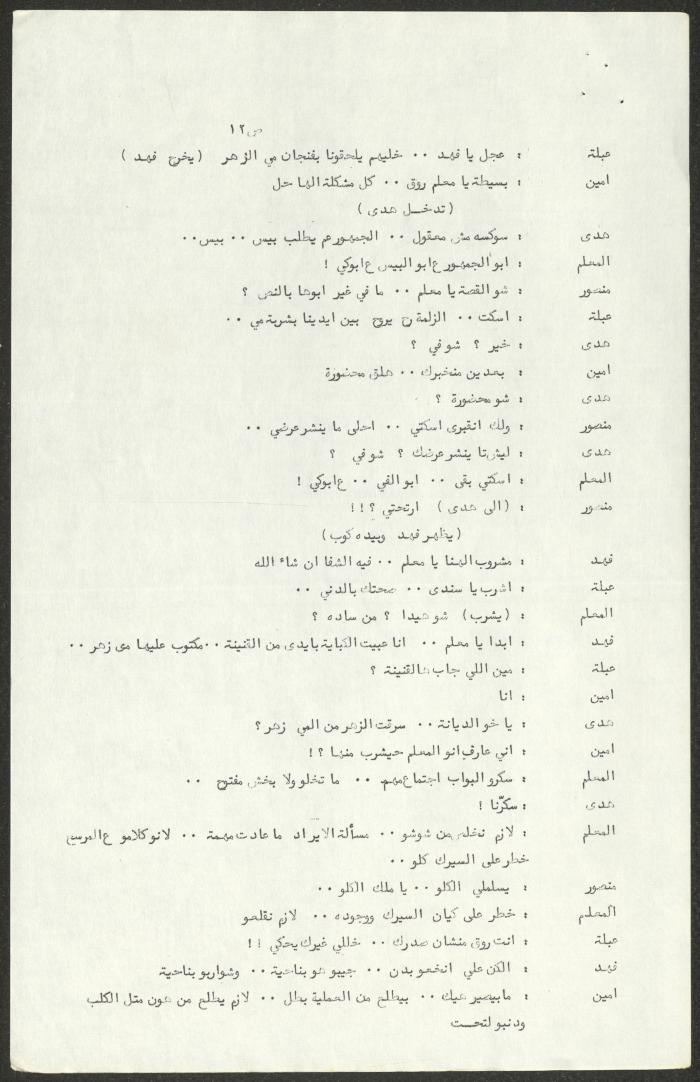 ص ١٢
عبلة : عجل يا فهد ٠٠ خليهم يلحقونا بفنجان مي الزهر (يخرج فهد)
امين : بسيطة يا معلم روق ٠٠ كل مشكلة الها حل
(تدخــل هدى)
هدى : سوكسه مش معقول ٠٠ الجمهور عم يطلب بيس ٠٠ بيس٠٠
المعلم : ابو الجمهور ع ابو البيس ع ابوكي !
منصور : شو القصة يا معلم ٠٠ ما في غير ابوها بالنص ؟
عبلة : اسكت ٠٠ الزلمة رح يروح بين ايدينا بشربة مي ٠٠
هدى : خير ؟ شو في ؟
امين : بعدين منخبرك ٠٠ هلق محضورة
هدى : شو محضورة ؟
منصور : ولك انقبرى اسكتي ٠٠ احلى ما ينشر عرضي ٠٠
هدى : ليش تا ينشر عرضك ؟ شو في ؟
المعلم : اسكتي بقى ٠٠ ابو الفي ٠٠ ع ابوكي !
منصور : (الى هدى) ارتحتي ؟!!
(يظهر فهد وبيده كوب)
فهد : مشروب الهنا يا معلم ٠٠ فيه الشفا ان شاء الله
عبلة : اشرب يا سندى ٠٠ صحتك بالدني ٠٠
المعلم : (يشرب) شو هيدا ؟ من ساده ؟
فهد : ابدا يا معلم ٠٠ انا عبيت الكباية بايدى من القنينة ٠٠مكتوب عليها مى زهر ٠٠
عبلة : مين اللي جاب هالقنينة ؟
امين : انا
هدى : يا خو الديانة ٠٠ سرقت الزهر من المي زهر ؟
امين : اني عارف انو المعلم حيشرب منها ؟!
المعلم : سكرو البواب اجتماع مهم ٠٠ ما تخلو ولا بخش مفتوح ٠٠
هدى : سكّرنا !
المعلم : لازم نخلص من شوشو ٠٠ مسألة الايراد ما عادت مهمة ٠٠ لانو كلامو ع المرسح
خطر على السيرك كلو ٠٠
منصور : يسلملي الكلو ٠٠ يا ملك الكلو ٠٠
المعلم : خطر على كيان السيرك ووجوده ٠٠ لازم نقلعو
عبلة : انت روق منشان صدرك ٠٠ خللي غيرك يحكي !!
فهد : الكن علي انخعو بدن ٠٠ جيبو هو بناحية ٠٠ وشواربو بناحية
امين : ما بيصير هيك ٠٠ بيطلع من العملية بطل ٠٠ لازم يطلع من هون متل الكلب
ودنبو لتحــت